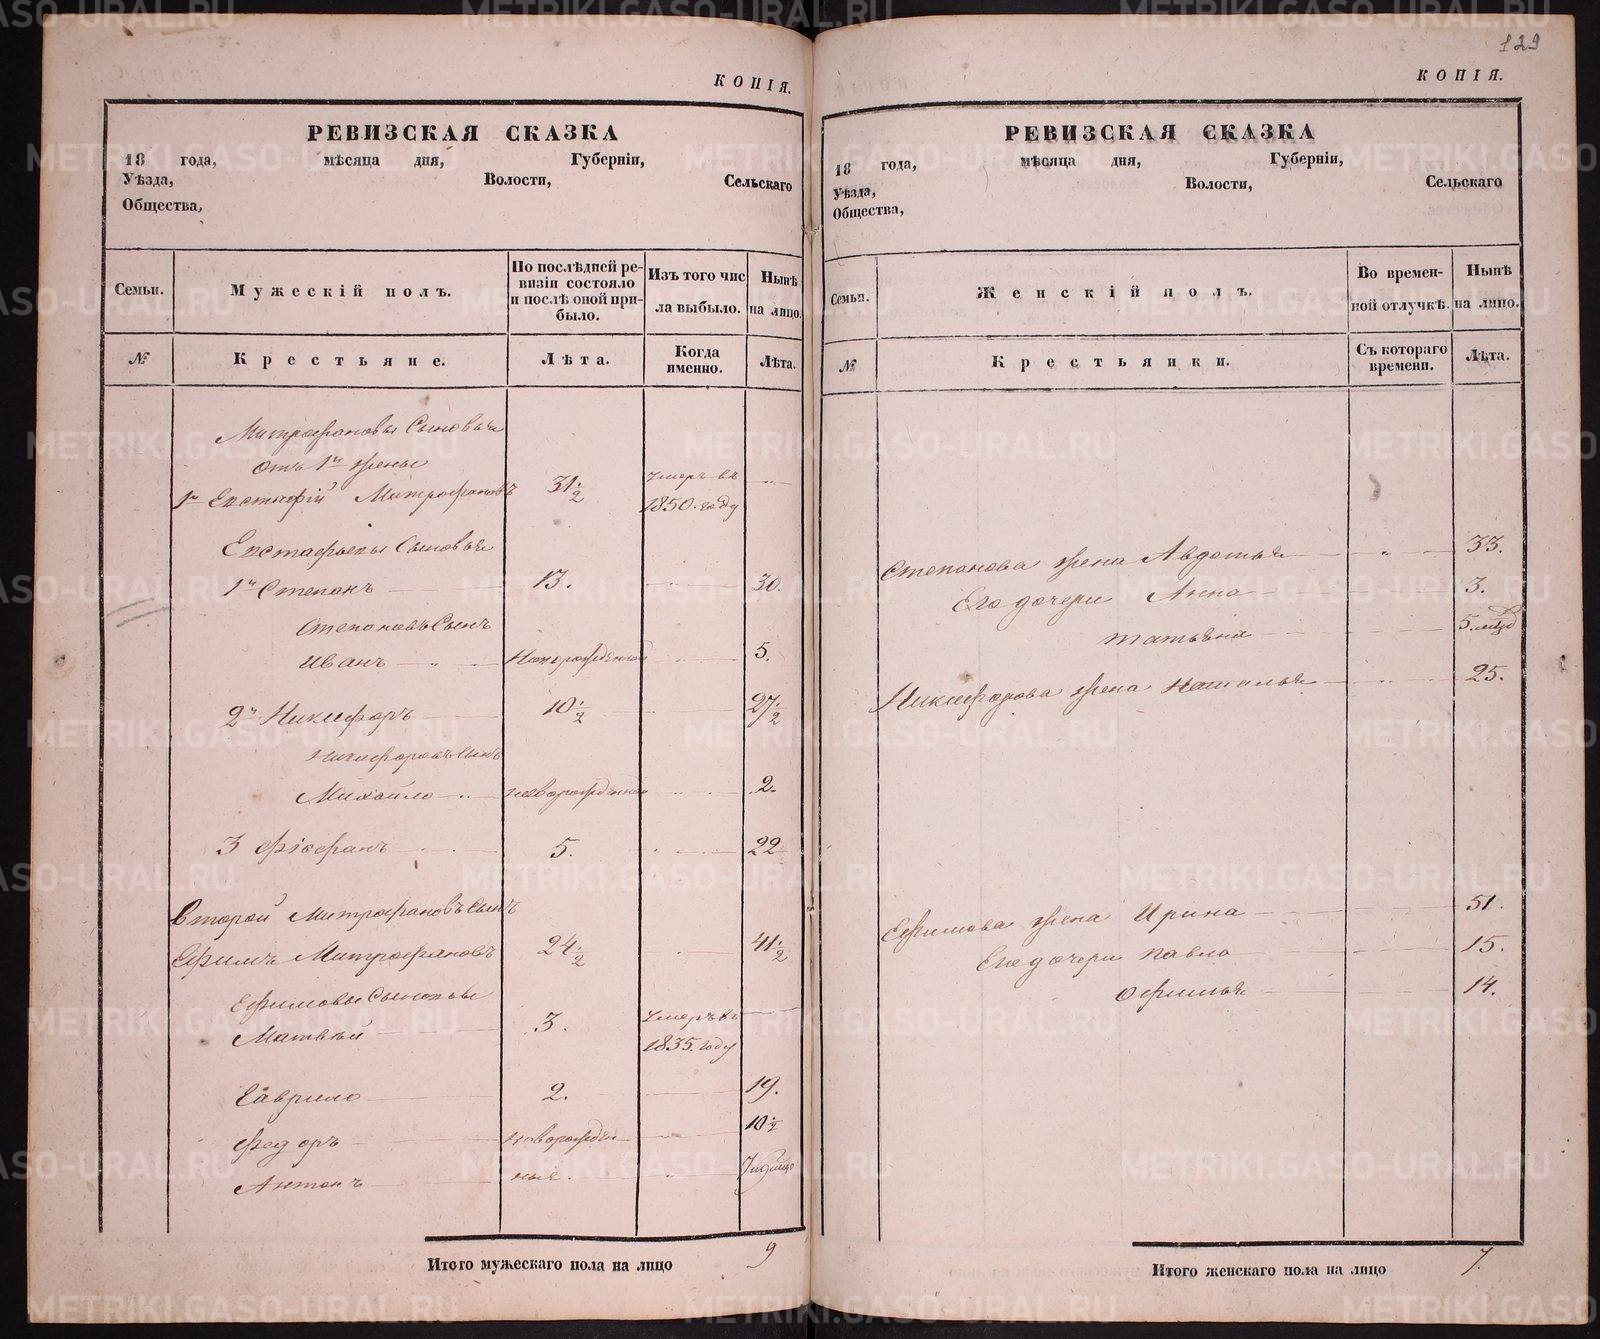 129
КОПІЯ.
РЕВИЗСКАЯ СКАЗКА
18 года, мѣсяца дня, Губерніи,
Уѣзда, Волости, Сельскаго
Общества,
Семьи. Мужескій полъ. По послѣдней ре-визіи состояло и послѣ оной при-было. Изъ того чис ла выбыло. Нынѣ на лицо.
№ Крестьяне. Лѣта. Когда именно. Лѣта.
Митрофановы Сыновья
отъ 1й жены
1й Евстафій Митрофановъ 31 1/2 Умеръ въ 1850. году
Евстафьевы Сыновья
1й Степанъ 13. 30.
Степановъ Сынъ
Иванъ Новорожденной 5.
2й Никифоръ 10 1/2 27 1/2
Никифоровъ Сынъ
Михайло новорожденной 2.
3 Фіофанъ 5. 22
Второй Митрофановъ Сынъ
Ефимъ Митрофановъ 24 1/2 41 1/2
Ефимовы Сыновья
Матвѣй 3. Умеръ въ 1835. году
Гаврило 2. 19.
Федоръ новорожден 10 1/2
Антонъ ные.
Итого мужескаго пола на лицо 9
КОПІЯ.
РЕВИЗСКАЯ СКАЗКА
18 года, мѣсяца дня, Губерніи,
Уѣзда, Волости, Сельскаго
Общества,
Семьи. Женскій полъ. Во времен-ной отлучкѣ. Нынѣ на лицо.
№ Крестьянки. Съ котораго времени. Лѣта.
Степанова жена Авдотья 33.
Его дочери Анна 3.
Татьяна 5.
Никифорова жена Наталья 25.
Ефимова жена Ирина 51.
Его дочери Павла 15.
Офимья 14.
Итого женскаго пола на лицо 7.
METRIKI.GASO-URAL.RU